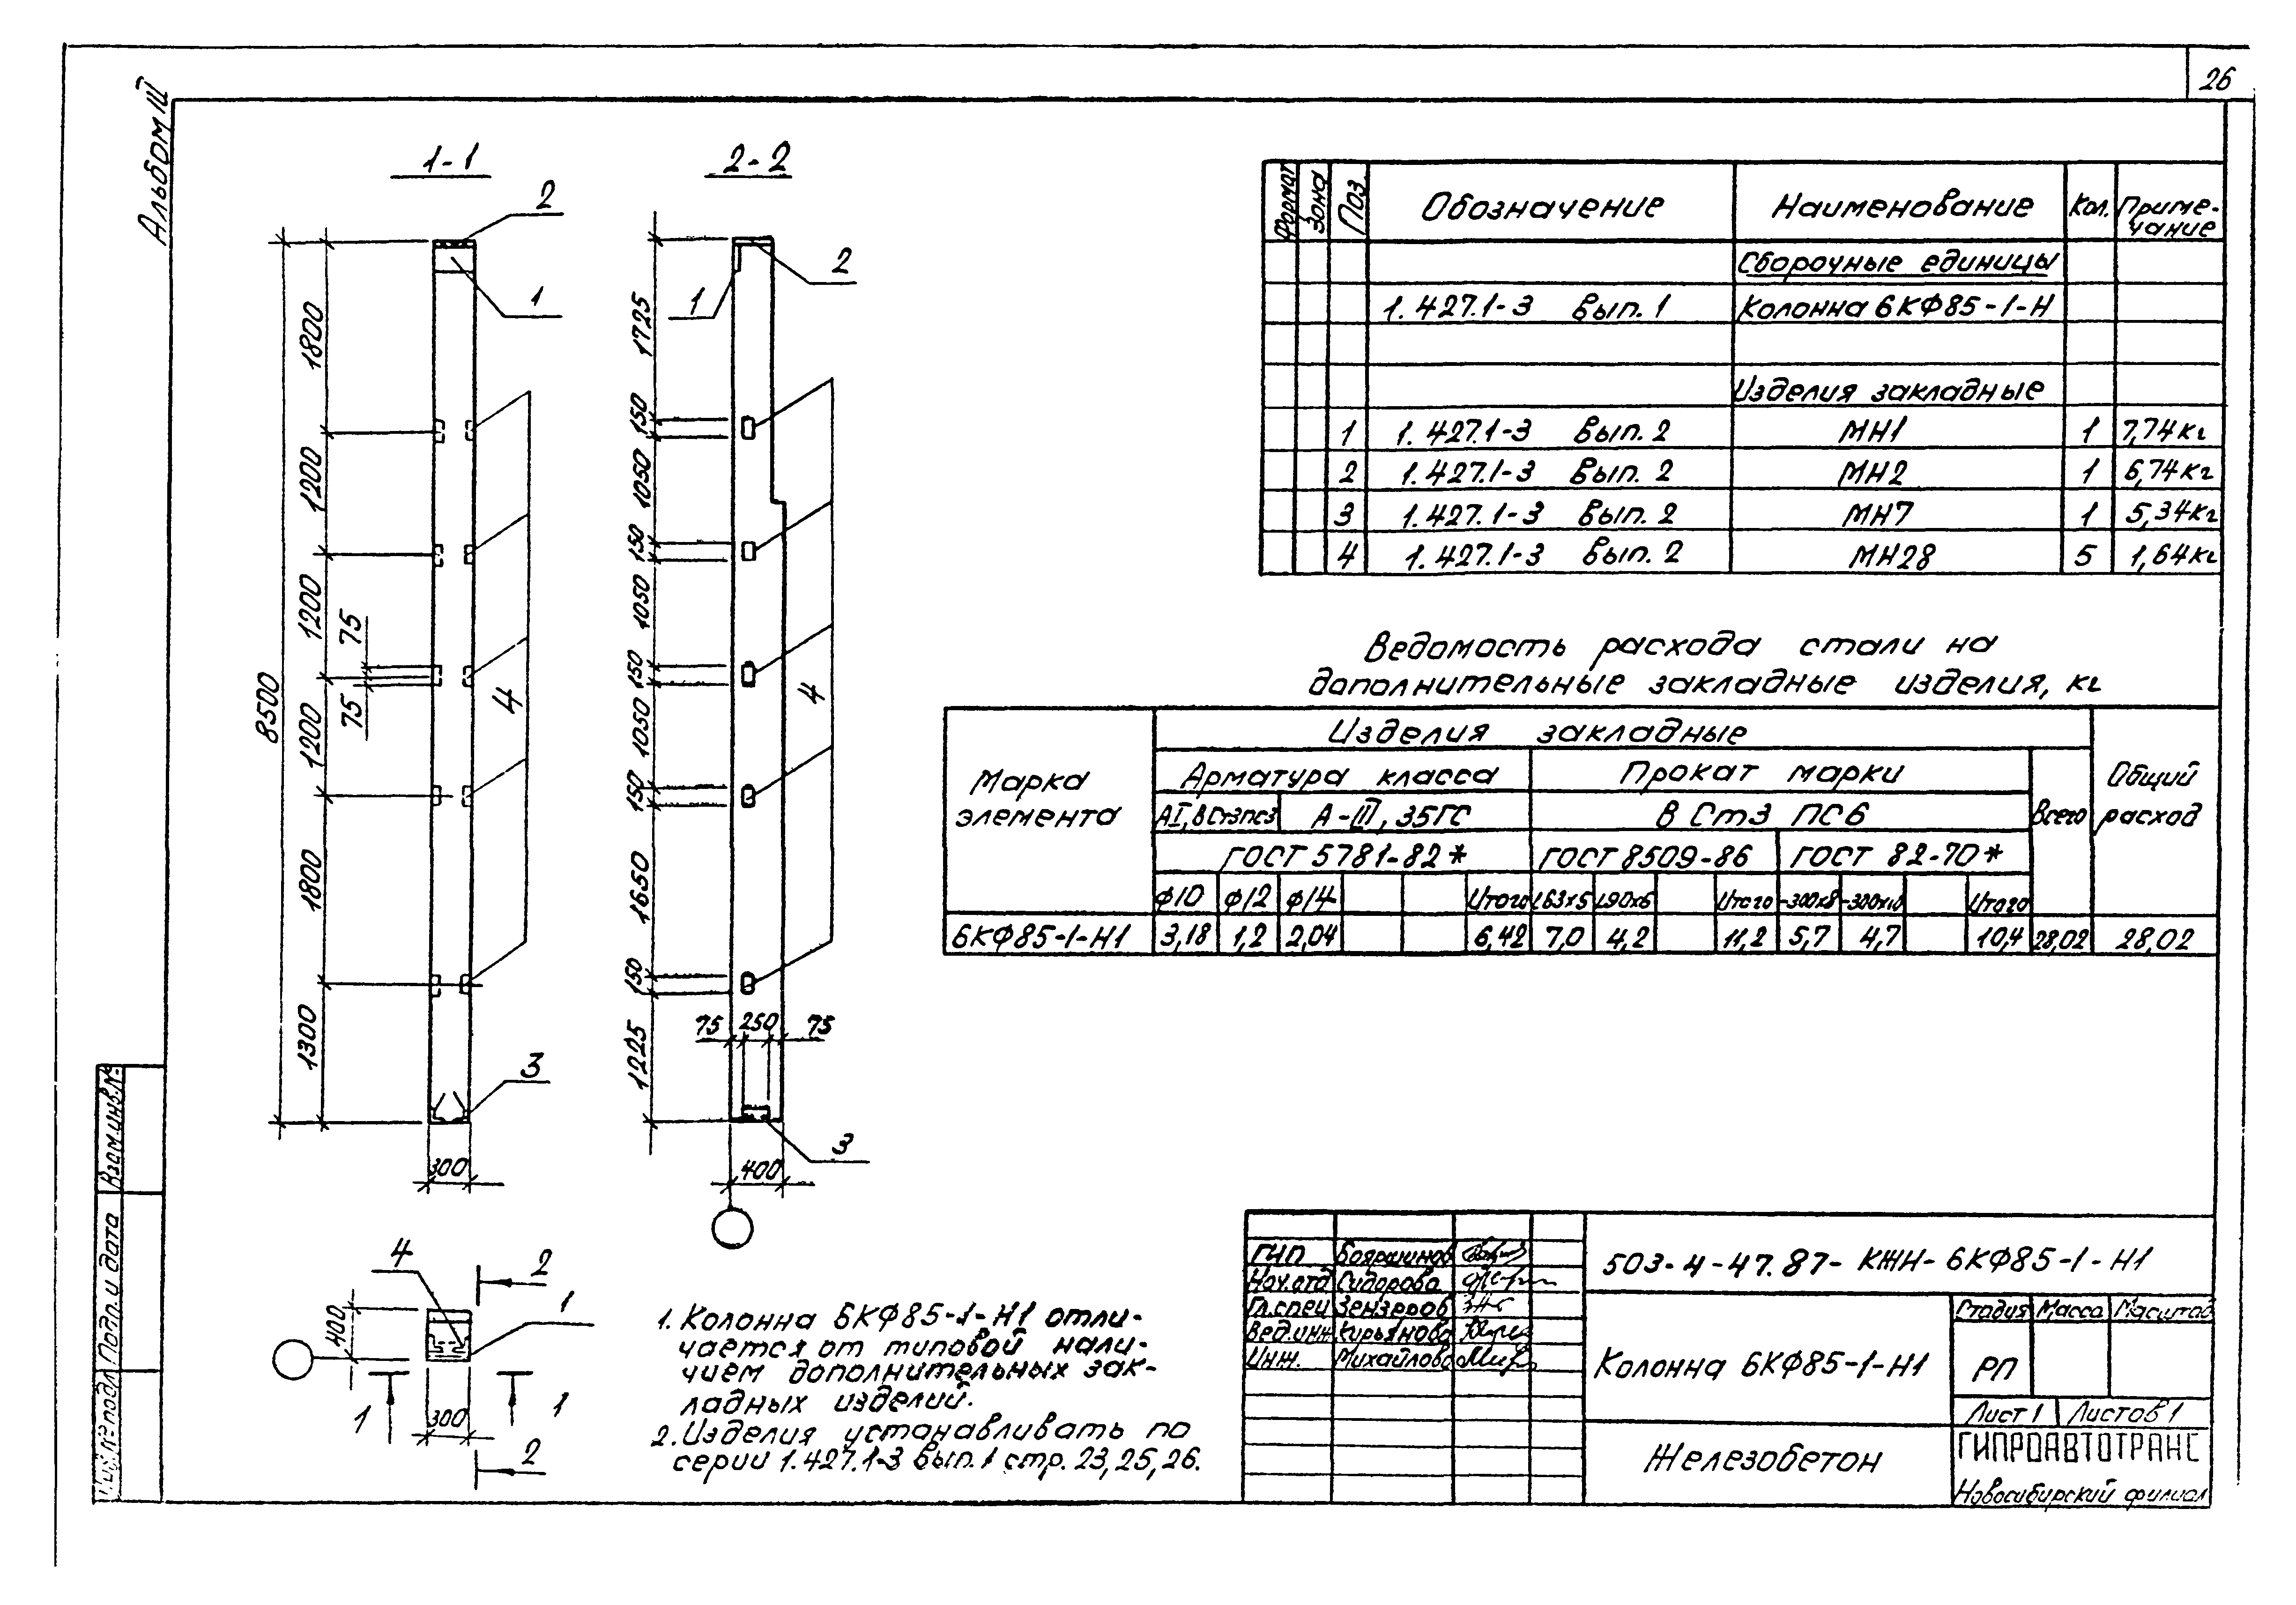 26
Альбом II
1-1
2
1
8500
1800
1200
1200
75
75
1200
1800
1300
4
3
300
2-2
2
1
1725
150
1050
150
1050
150
1050
150
1650
150
1225
4
75 250 75
3
400
4
2
1
400
300
1 1
2
Формат Зона Поз. Обозначение Наименование Кол. Приме-
чание
Сборочные единицы
1.427.1-3 Вып. 1 Колонна 6КФ85-1-Н
Изделия закладные
1 1.427.1-3 Вып. 2 МН1 1 7,74кг
2 1.427.1-3 Вып. 2 МН2 1 6,74кг
3 1.427.1-3 Вып. 2 МН7 1 5,34кг
4 1.427.1-3 Вып. 2 МН28 5 1,64кг
Ведомость расхода стали на
дополнительные закладные изделия, кг
Марка
элемента
Изделия закладные
Общий
расход
Арматура класса Прокат марки
Всего
АI, ВСт3пс3 А-III, 35ГС В Ст3 ПС6
ГОСТ 5781-82* ГОСТ 8509-86 ГОСТ 82-70*
Ф10 Ф12 Ф14 Итого L63х5 L90х6 Итого -300х8 -300х10 Итого
6КФ85-1-Н1 3,18 1,2 2,04 6,42 7,0 4,2 11,2 5,7 4,7 10,4 28,02 28,02
1. Колонна 6КФ85-1-Н1 отли-
чается от типовой нали-
чием дополнительных зак-
ладных изделий.
2. Изделия устанавливать по
серии 1.427.1-3 вып. 1 стр. 23, 25, 26.
ГИП Бояршинов
Нач.отд Сидорова
Гл.спец Зензеров
Вед.инж Кирьянова
Инж. Михайлова
503-4-47.87-КЖН-6КФ85-1-Н1
Колонна 6КФ85-1-Н1
Стадия Масса Масштаб
РП
Лист 1 Листов 1
Железобетон
ГИПРОАВТОТРАНС
Новосибирский филиал
Взам.инв.№
Подп. и дата
Инв.№ подл